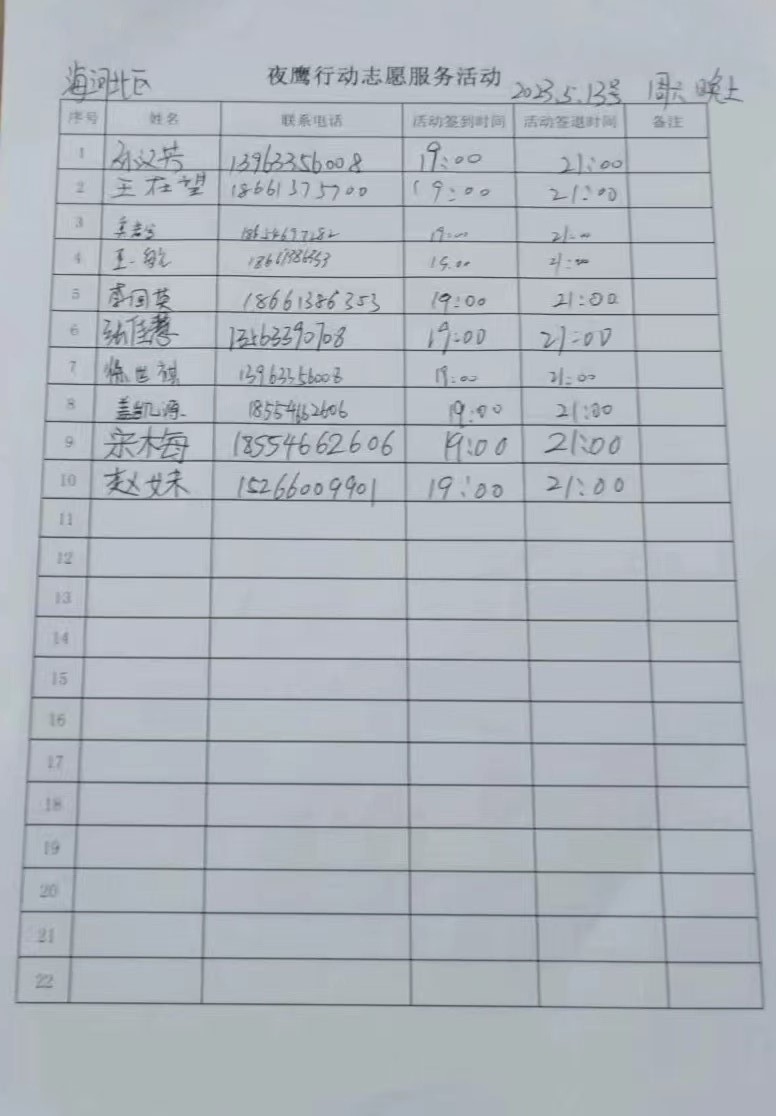 海河北区 夜鹰行动志愿服务活动 2023.5.13号 周六 晚上
序号 姓名 联系电话 活动签到时间 活动签退时间 备注
1 13963356008 19:00 21:00
2 王在望 18661375700 19:00 21:00
3 18654697282 19:00 21:00
4 21:00
5 18661386353 19:00 21:00
6 张佳慧 13563390708 19:00 21:00
7 徐世祺 13963356008 19:00 21:00
8 盖凯源 18554662606 19:00 21:00
9 宋木梅 18554662606 19:00 21:00
10 赵妹 15266009901 19:00 21:00
11
12
13
14
15
16
17
18
19
20
21
22